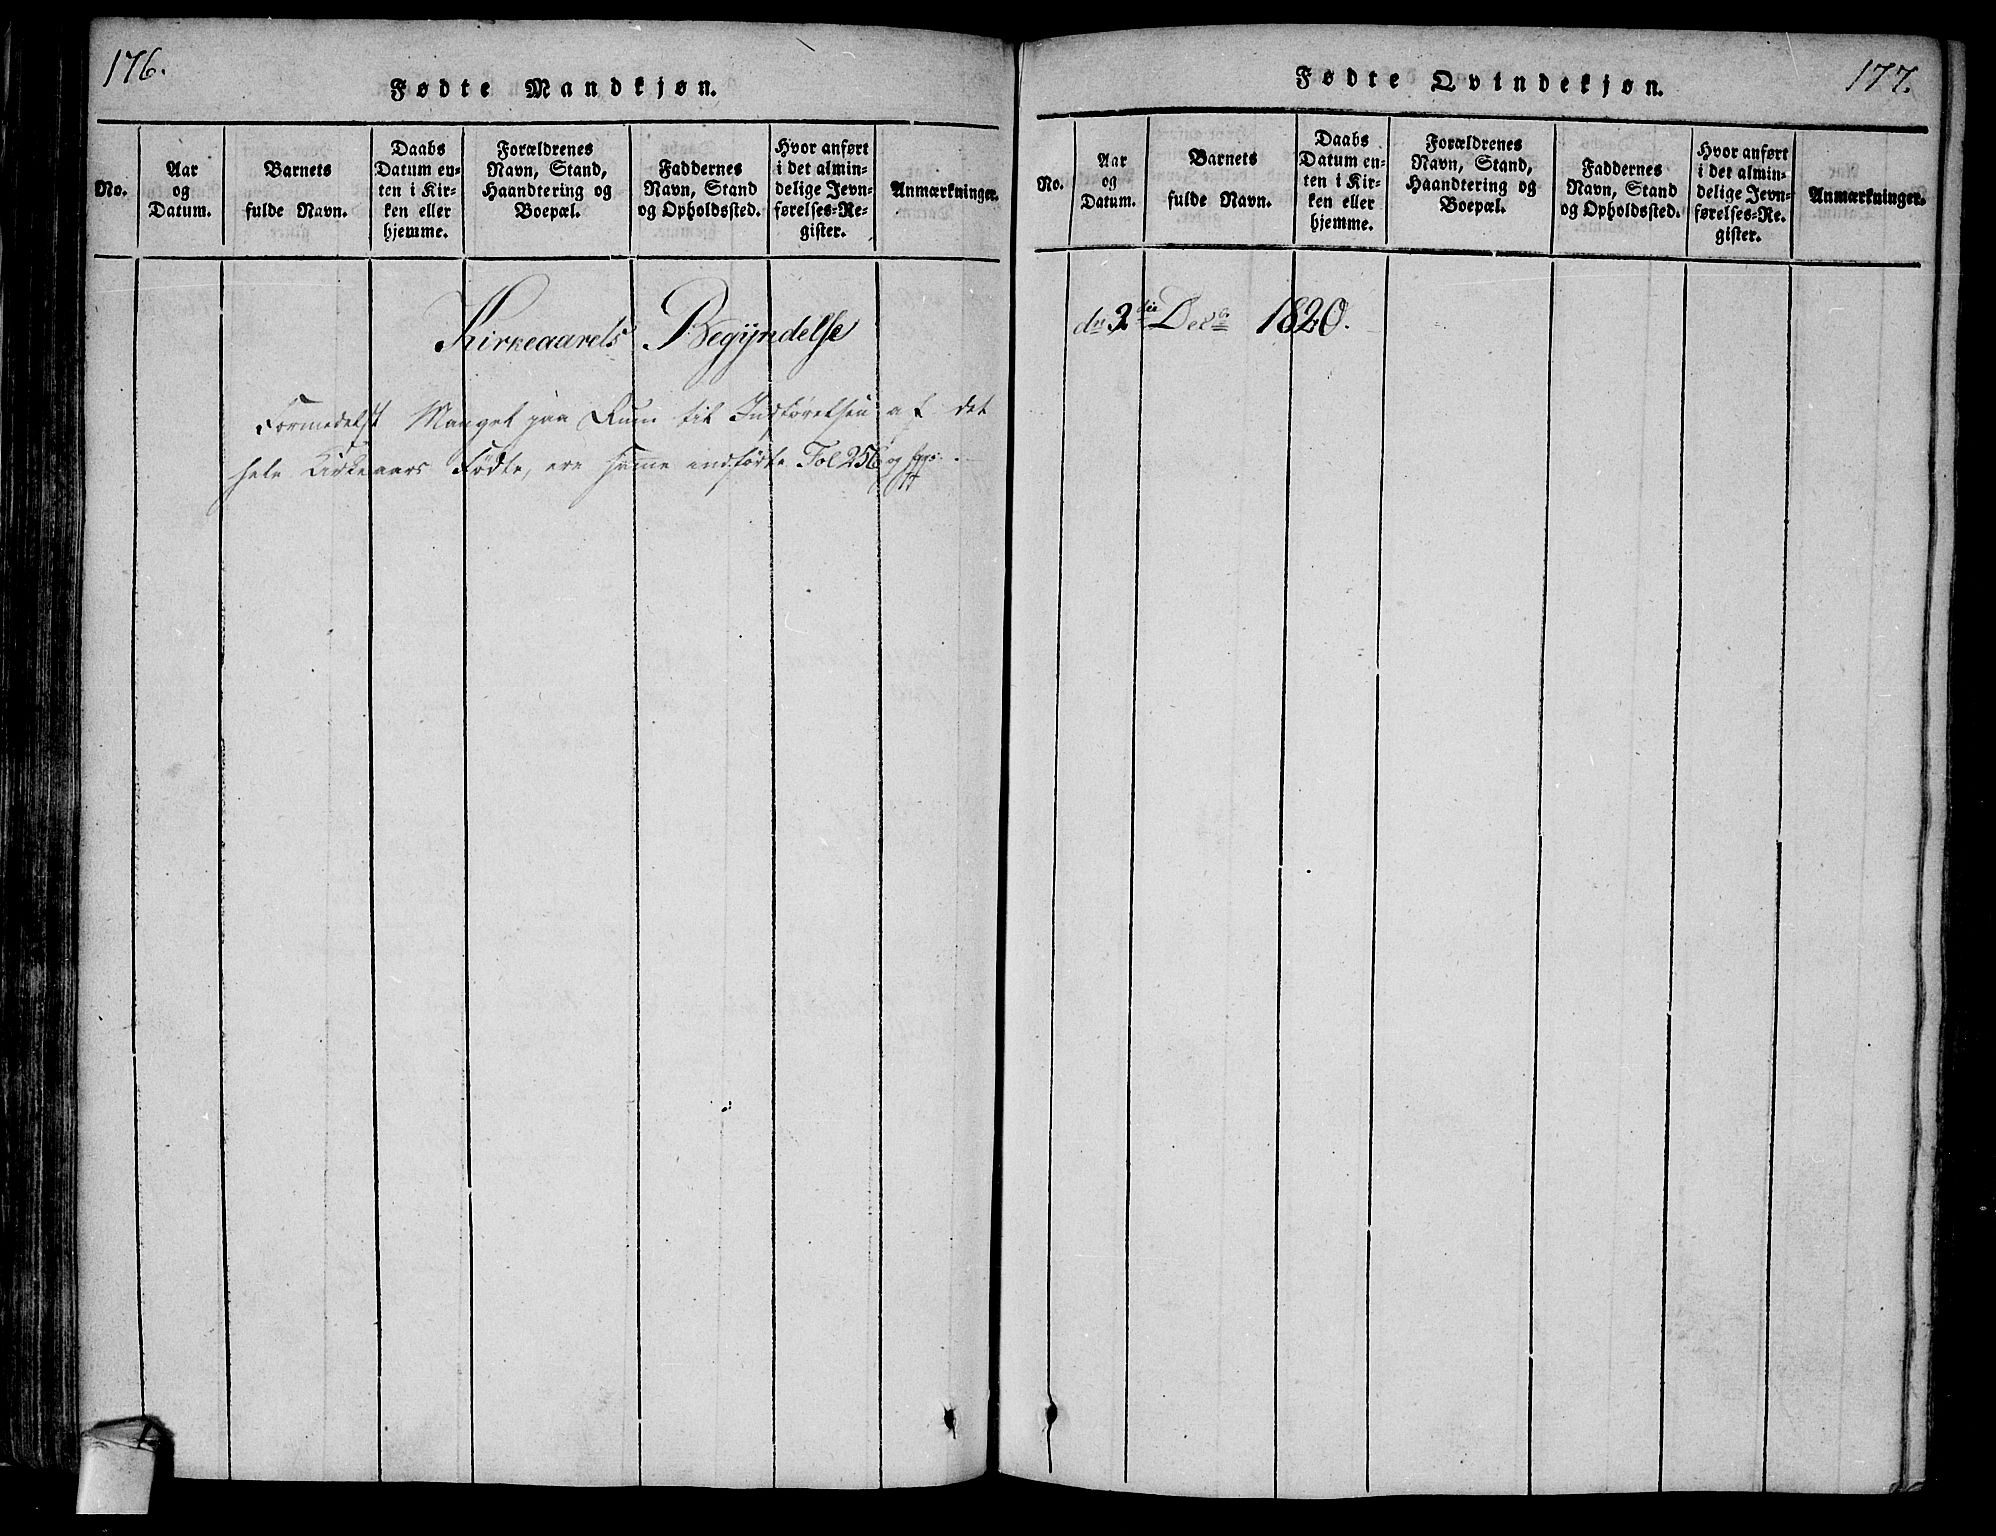 176.
Fødte Mandkjøn.
No.
Aar
og
Datum.
Barnets
fulde Navn.
Daabs
Datum en-
ten i Kir-
ken eller
hjemme.
Forældrenes
Navn, Stand,
Haandtering og
Boepæl.
Faddernes
Navn, Stand
og Opholdssted.
Hvor anført
i det almin-
delige Jevn-
førelses-Re-
gister.
Anmærkninger.
Kirkeaarets Begÿndelse
Formedelst Mangel paa Rum til Indførelsen af det
hele Kirkeaars Fødte, ere samme indførte Fol 256 og
177.
Fødte Qvindekjøn.
No.
Aar
og
Datum.
Barnets
fulde Navn.
Daabs
Datum en-
ten i Kir-
ken eller
hjemme.
Forældrenes
Navn, Stand,
Haandtering og
Boepæl.
Faddernes
Navn, Stand
og Opholdssted.
Hvor anført
i det almin-
delige Jevn-
førelses-Re-
gister.
Anmærkninger.
dn 3die Decbr 1820.